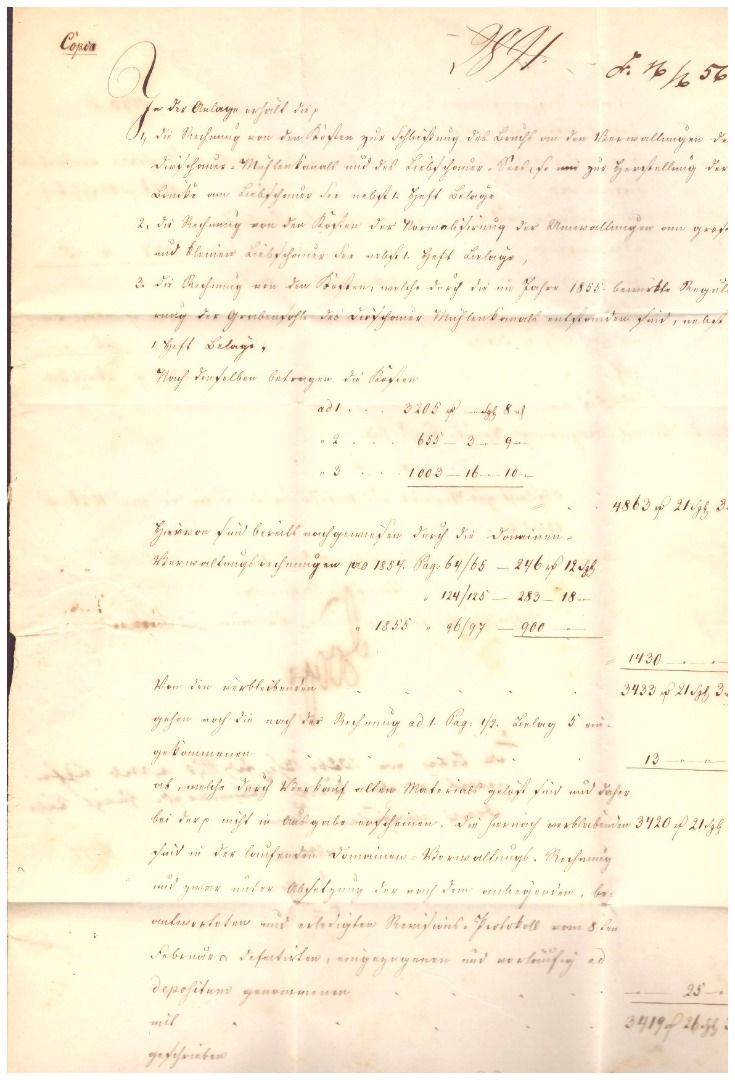 Copia
In der Anlage erhält die p
1, die Rechnung von den Kosten zur Schließung des Bruchs an den Verwallungen de
Dirschauer-Mühlenkanals und des Liebschauer-Sees, so wie zur Herstellung der
Brücke am Liebschauer See nebst 1. Heft Beläge
2, die Rechnung von den Kosten der Normalisirung der Umwallungen am groß
und kleinen Liebschauer See nebst 1. Heft Beläge,
3. die Rechnung von den Kosten, welche durch die im Jahre 1855. bewirkte Regul
rung der Grabensohle des Dirschauer Mühlenkanals entstanden sind, nebst
1. Heft Beläge.
Nach denselben betragen die Kosten
ad 1 . . . 3205 rf — sgl 8 d
" 2 . . . 655 — 3 — 9 —
" 3 . . . 1003 — 16 — 10 —
4863 rf 21 Sgl 3
Hiervon sind bereits nachgewiesen durch die Domainen-
Verwaltungsrechnungen pro 1854. Pag: 64/65 — 246 rf 12 Sgl
" 124/125 — 283 — 18 —
" 1855 " 96/97 — 900 —
1430 — — —
Von den verbleibenden 3433 rf 21 Sgl 3
gehen noch die nach der Rechnung ad 1. Pag: 1/2. Belag 5 ein-
gekommenen 13 — — —
ab, welche durch Verkauf alten Materials gelöst sind und daher
bei der p nicht in Ausgabe erscheinen. Die hiernach verbleibenden 3420 rf 21 Sgl
sind in der laufenden Domainen-Verwaltungs-Rechnung
und zwar unter Absetzung der nach dem anliegenden, be-
antworteten und erledigten Revisions-Protokoll vom 8ten
Februar defectirten, eingezogenen und vorläufig ad
depositum genommenen — 25 —
mit 3419 rf 26 Sgl 3
geschrieben